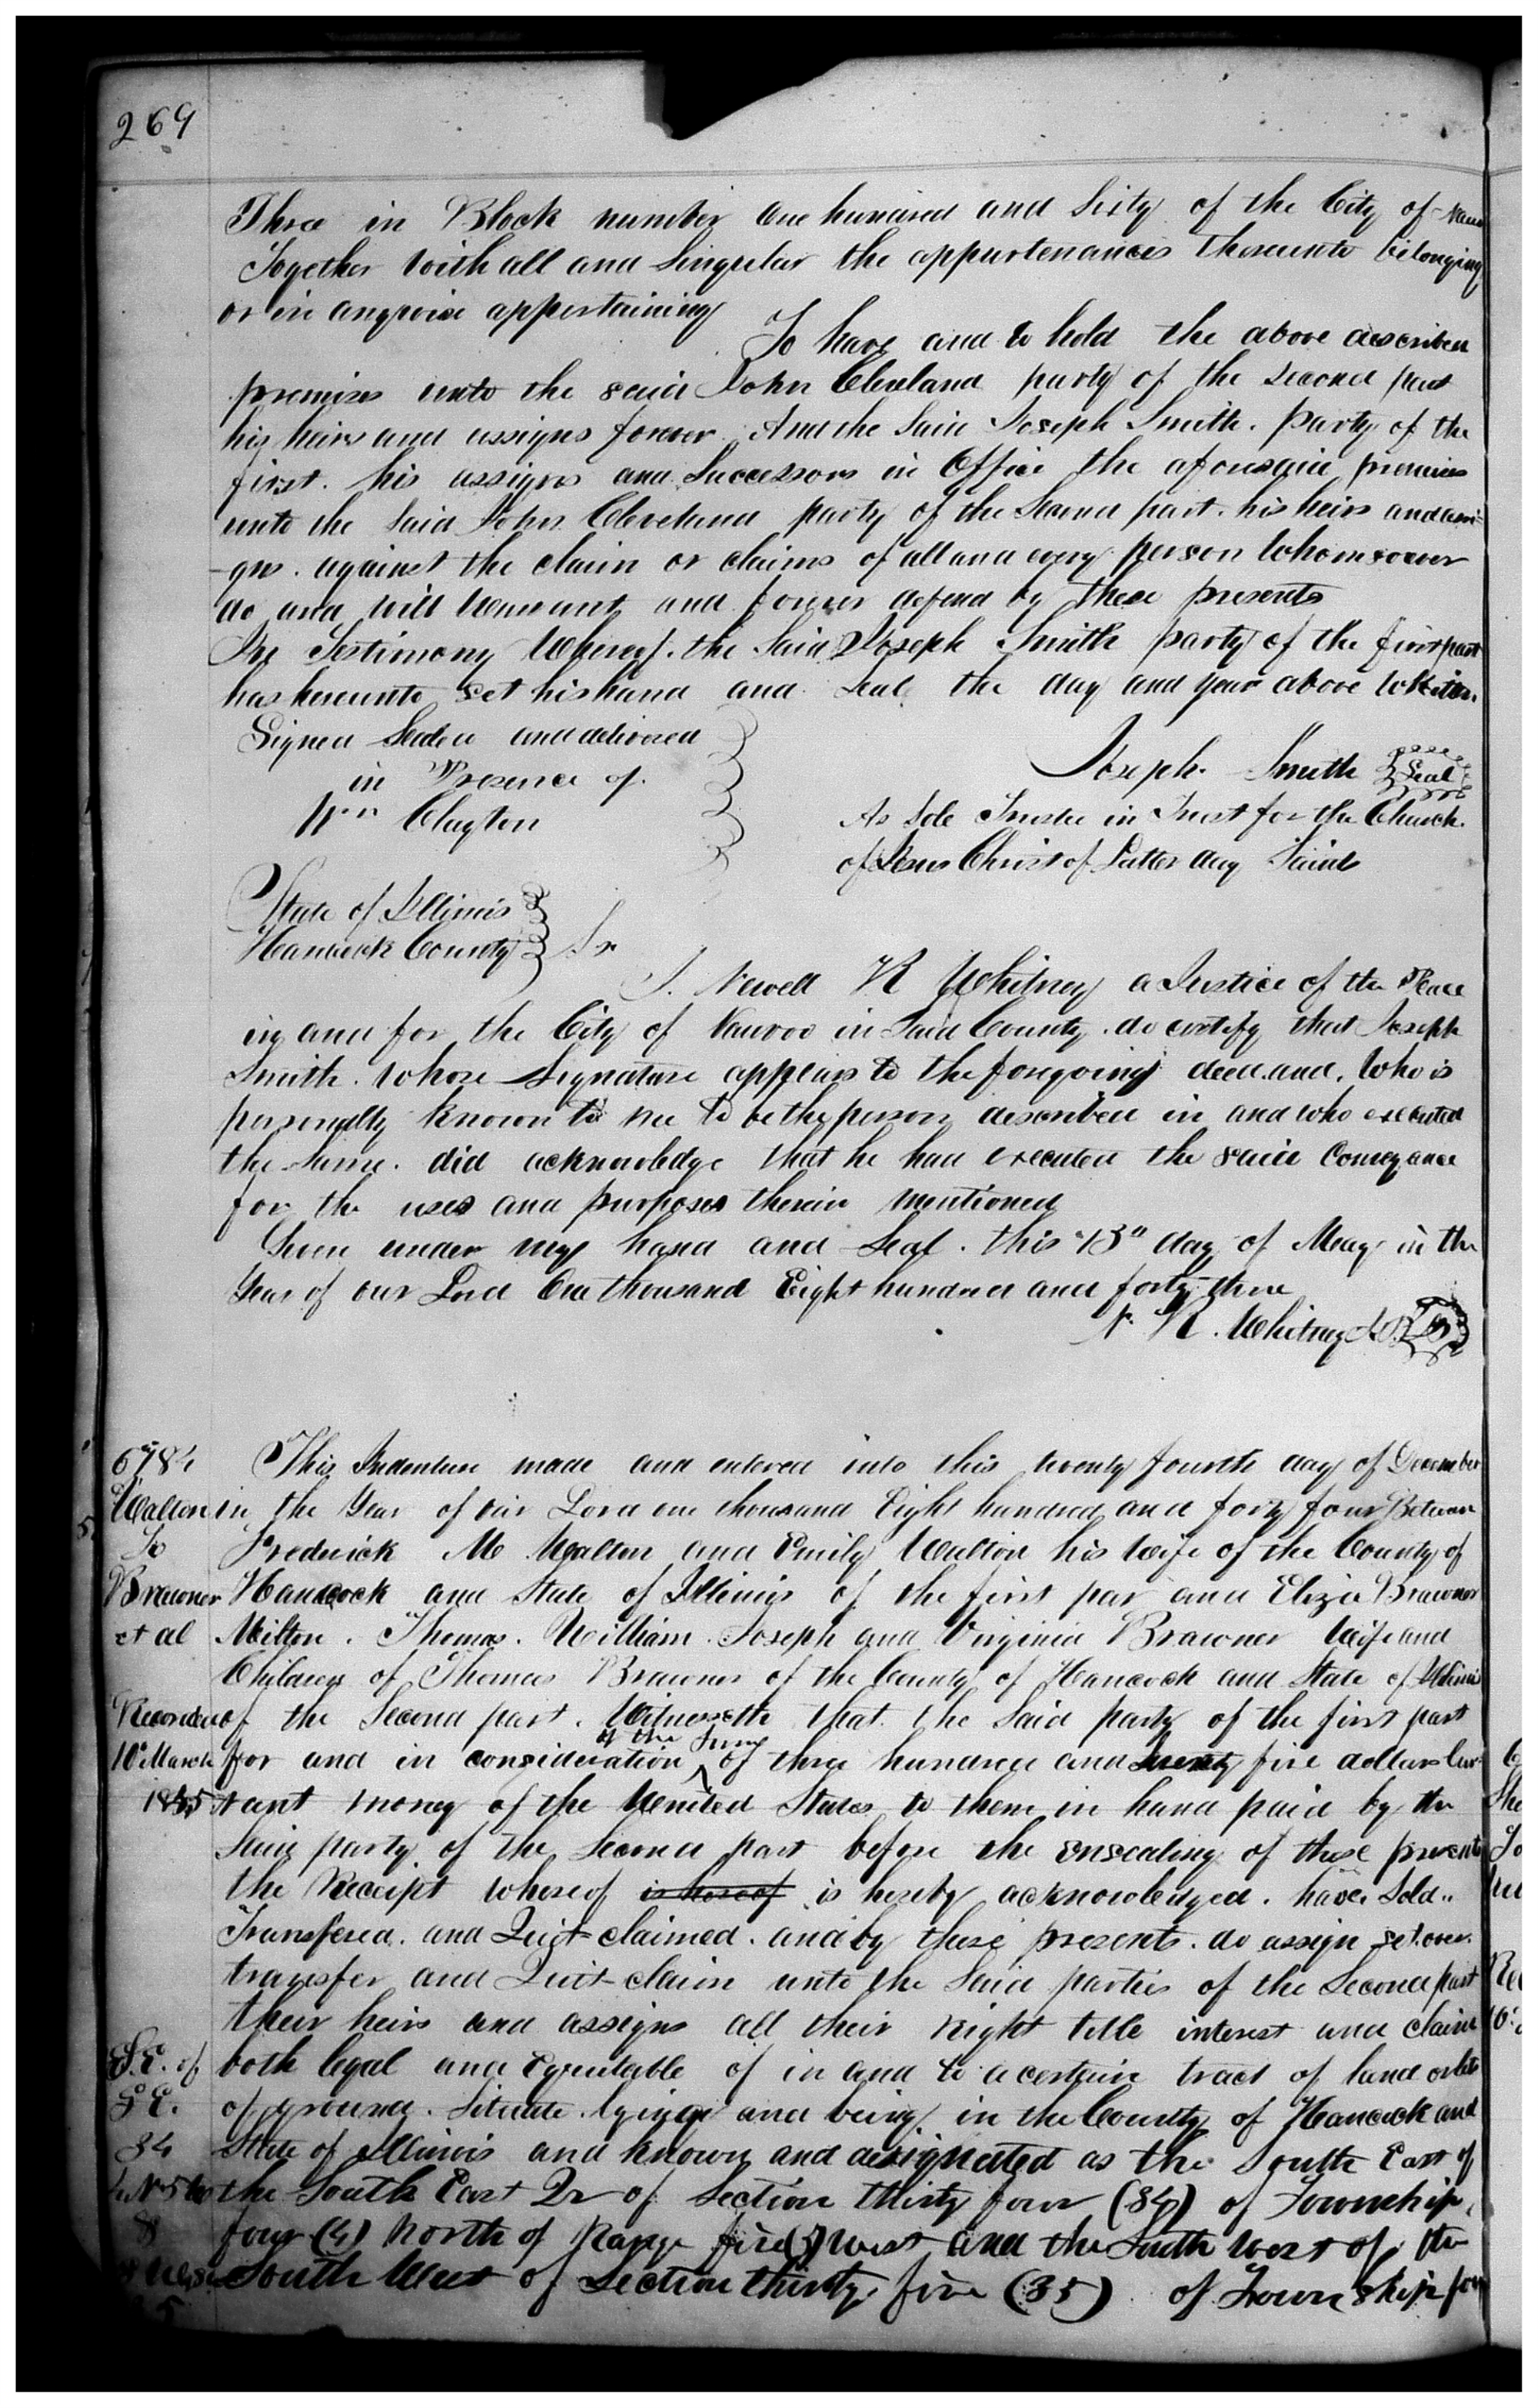 269
Three in Block number One hundred and Sixty of the City of
Together with all and Singular the appurtenances thereunto belonging
or in anywise appertaining
To have and to hold the above described
premises unto the said John Cleveland party of the second part
his heirs and assigns forever. And the Said Joseph Smith. party of the
first. his assigns and Successors in Office the aforesaid premises
unto the Said John Cleveland party of the Second part. his heirs and assi-
-gns. against the claim or claims of all and every person Whomsoever
do and will Warrant and forever defend by these presents
In Testimony Whereof. the Said Joseph Smith party of the first part
has hereunto set his hand and Seal the day and year above Written.
Signed Sealed and delivered
in Presence of.
Wm Clayton
Joseph Smith Seal
As Sole Trustee in Trust for the Church
of Jesus Christ of Latter day Saints
State of Illinois
Hancock County Ss
I. Newell K Whitney a Justice of the Peace
in and for the City of Nauvoo in Said County. do certify that Joseph
Smith. Whose Signature appears to the foregoing deed. and. Who is
personally known to me to be the person described in and who executed
the Same. did acknowledge that he had executed the said Conveyance
for the uses and purposes therein mentioned
Given under my hand and Seal. this "13" day of May in the
Year of our Lord One thousand Eight hundred and forty three
N. K. Whitney
6784
Walton
To
Brawner
et al
Recorded
10" March
1845
This Indenture made and entered into this twenty fourth day of December
in the Year of our Lord one thousand Eight hundred and forty four Between
Frederick M Walton and Emily Walton his Wife of the County of
Hancock and State of Illinois of the first par and Eliza Brawner
Milton. Thomas. William. Joseph and Virginia Brawner Wife and
Children of Thomas Brawner of the County of Hancock and State of Illinois
of the Second part. Witnesseth that the Said party of the first part
for and in consideration of the Sum of three hundred and twenty five dollars Cur-
rant money of the United States to them in hand paid by the
Said party of the Second part before the ensealing of these presents
the Receipt whereof is hereof is hereby acknowledged. have Sold..
Transfered. and Quit-claimed. and by these presents. do assign set over.
transfer and Quit-claim unto the Said parties of the Second part
their heirs and assigns all their right title interest and claim
both legal and Equitable of in and to a certain tract of land or lots
of ground. Situate. lying and being in the County of Hancock and
State of Illinois and known and designated as the South East of
the South East Qr of Section thirty four (34) of Township
four (4) North of Range five (5) West and the South West of the
South West of Section thirty five (35) of Township four
S.E. of
S E.
34
4 N 5 W
&